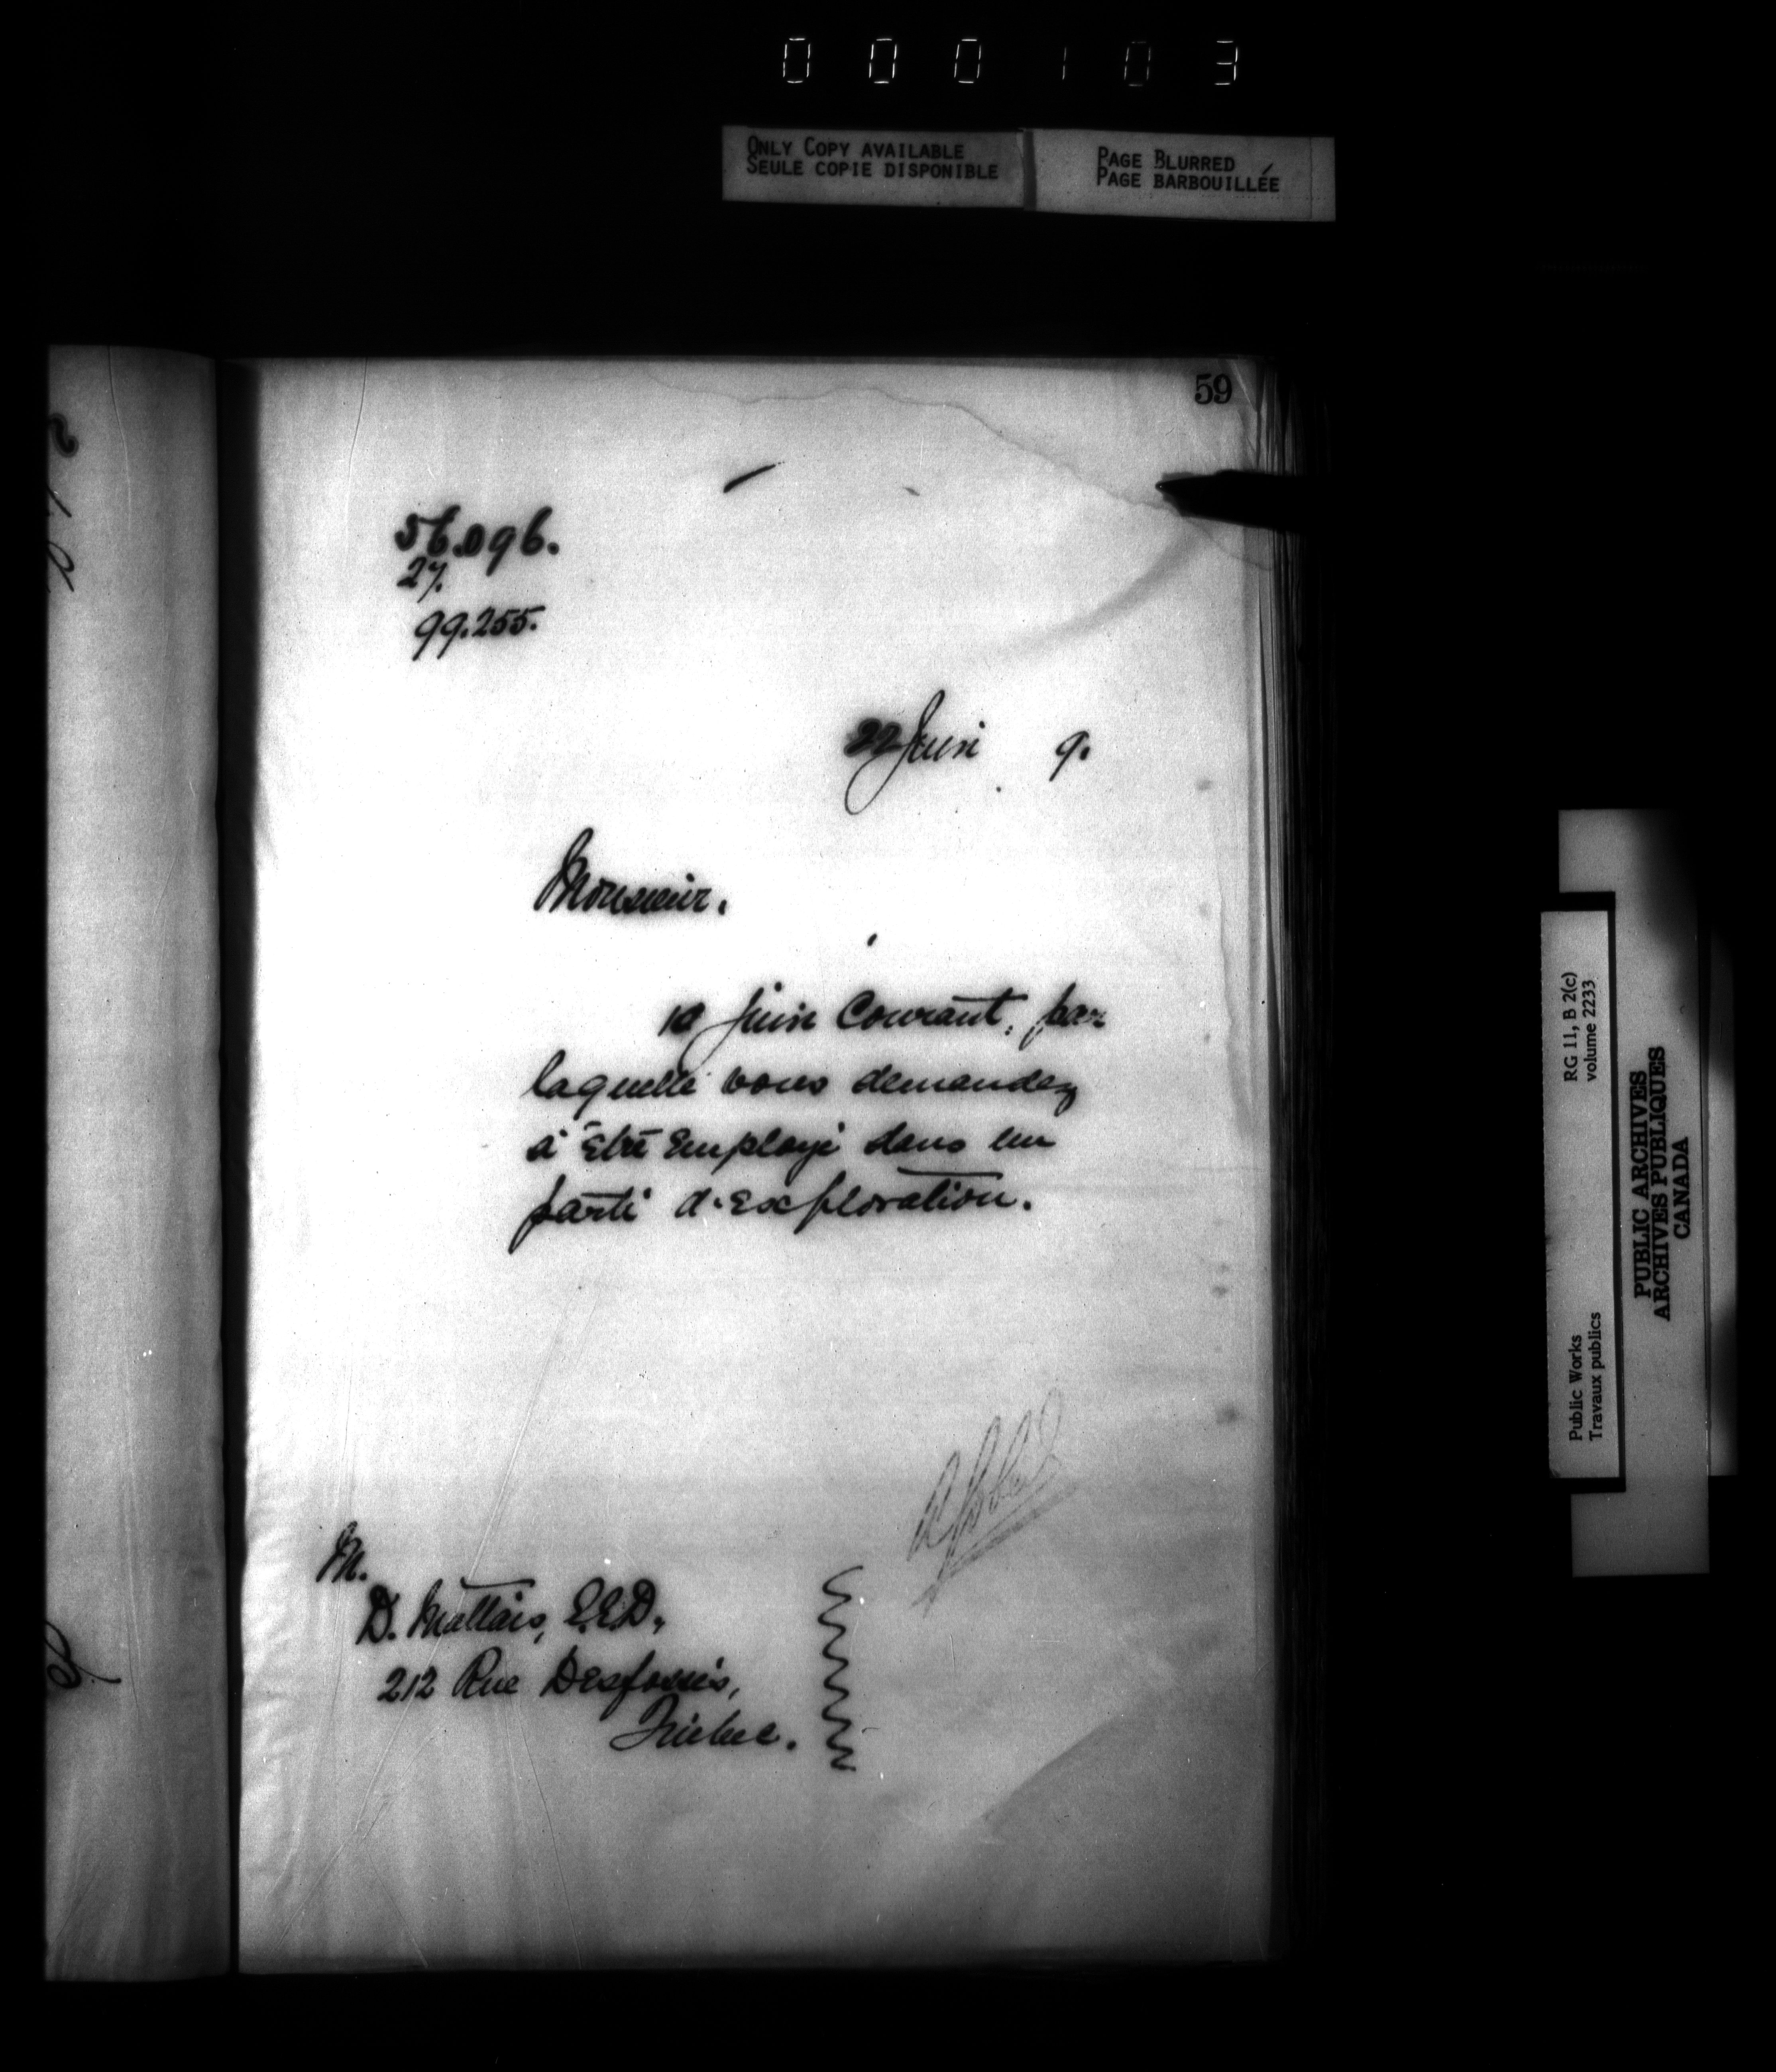 000103
ONLY COPY AVAILABLE
SEULE COPIE DISPONIBLE
PAGE BLURRED
PAGE BARBOUILLÉE
59
56.096.
27.
99.255.
22 Juin 9.
Monsieur.
10 Juin Courant, par
laquelle vous demandez
à être Employé dans un
parti d'Exploration.
M.
D. Mattais, E.E.D.,
212 Rue Desfossés,
Québec.
RG 11, B 2(c)
volume 2233
Public Works
Travaux publics
PUBLIC ARCHIVES
ARCHIVES PUBLIQUES
CANADA